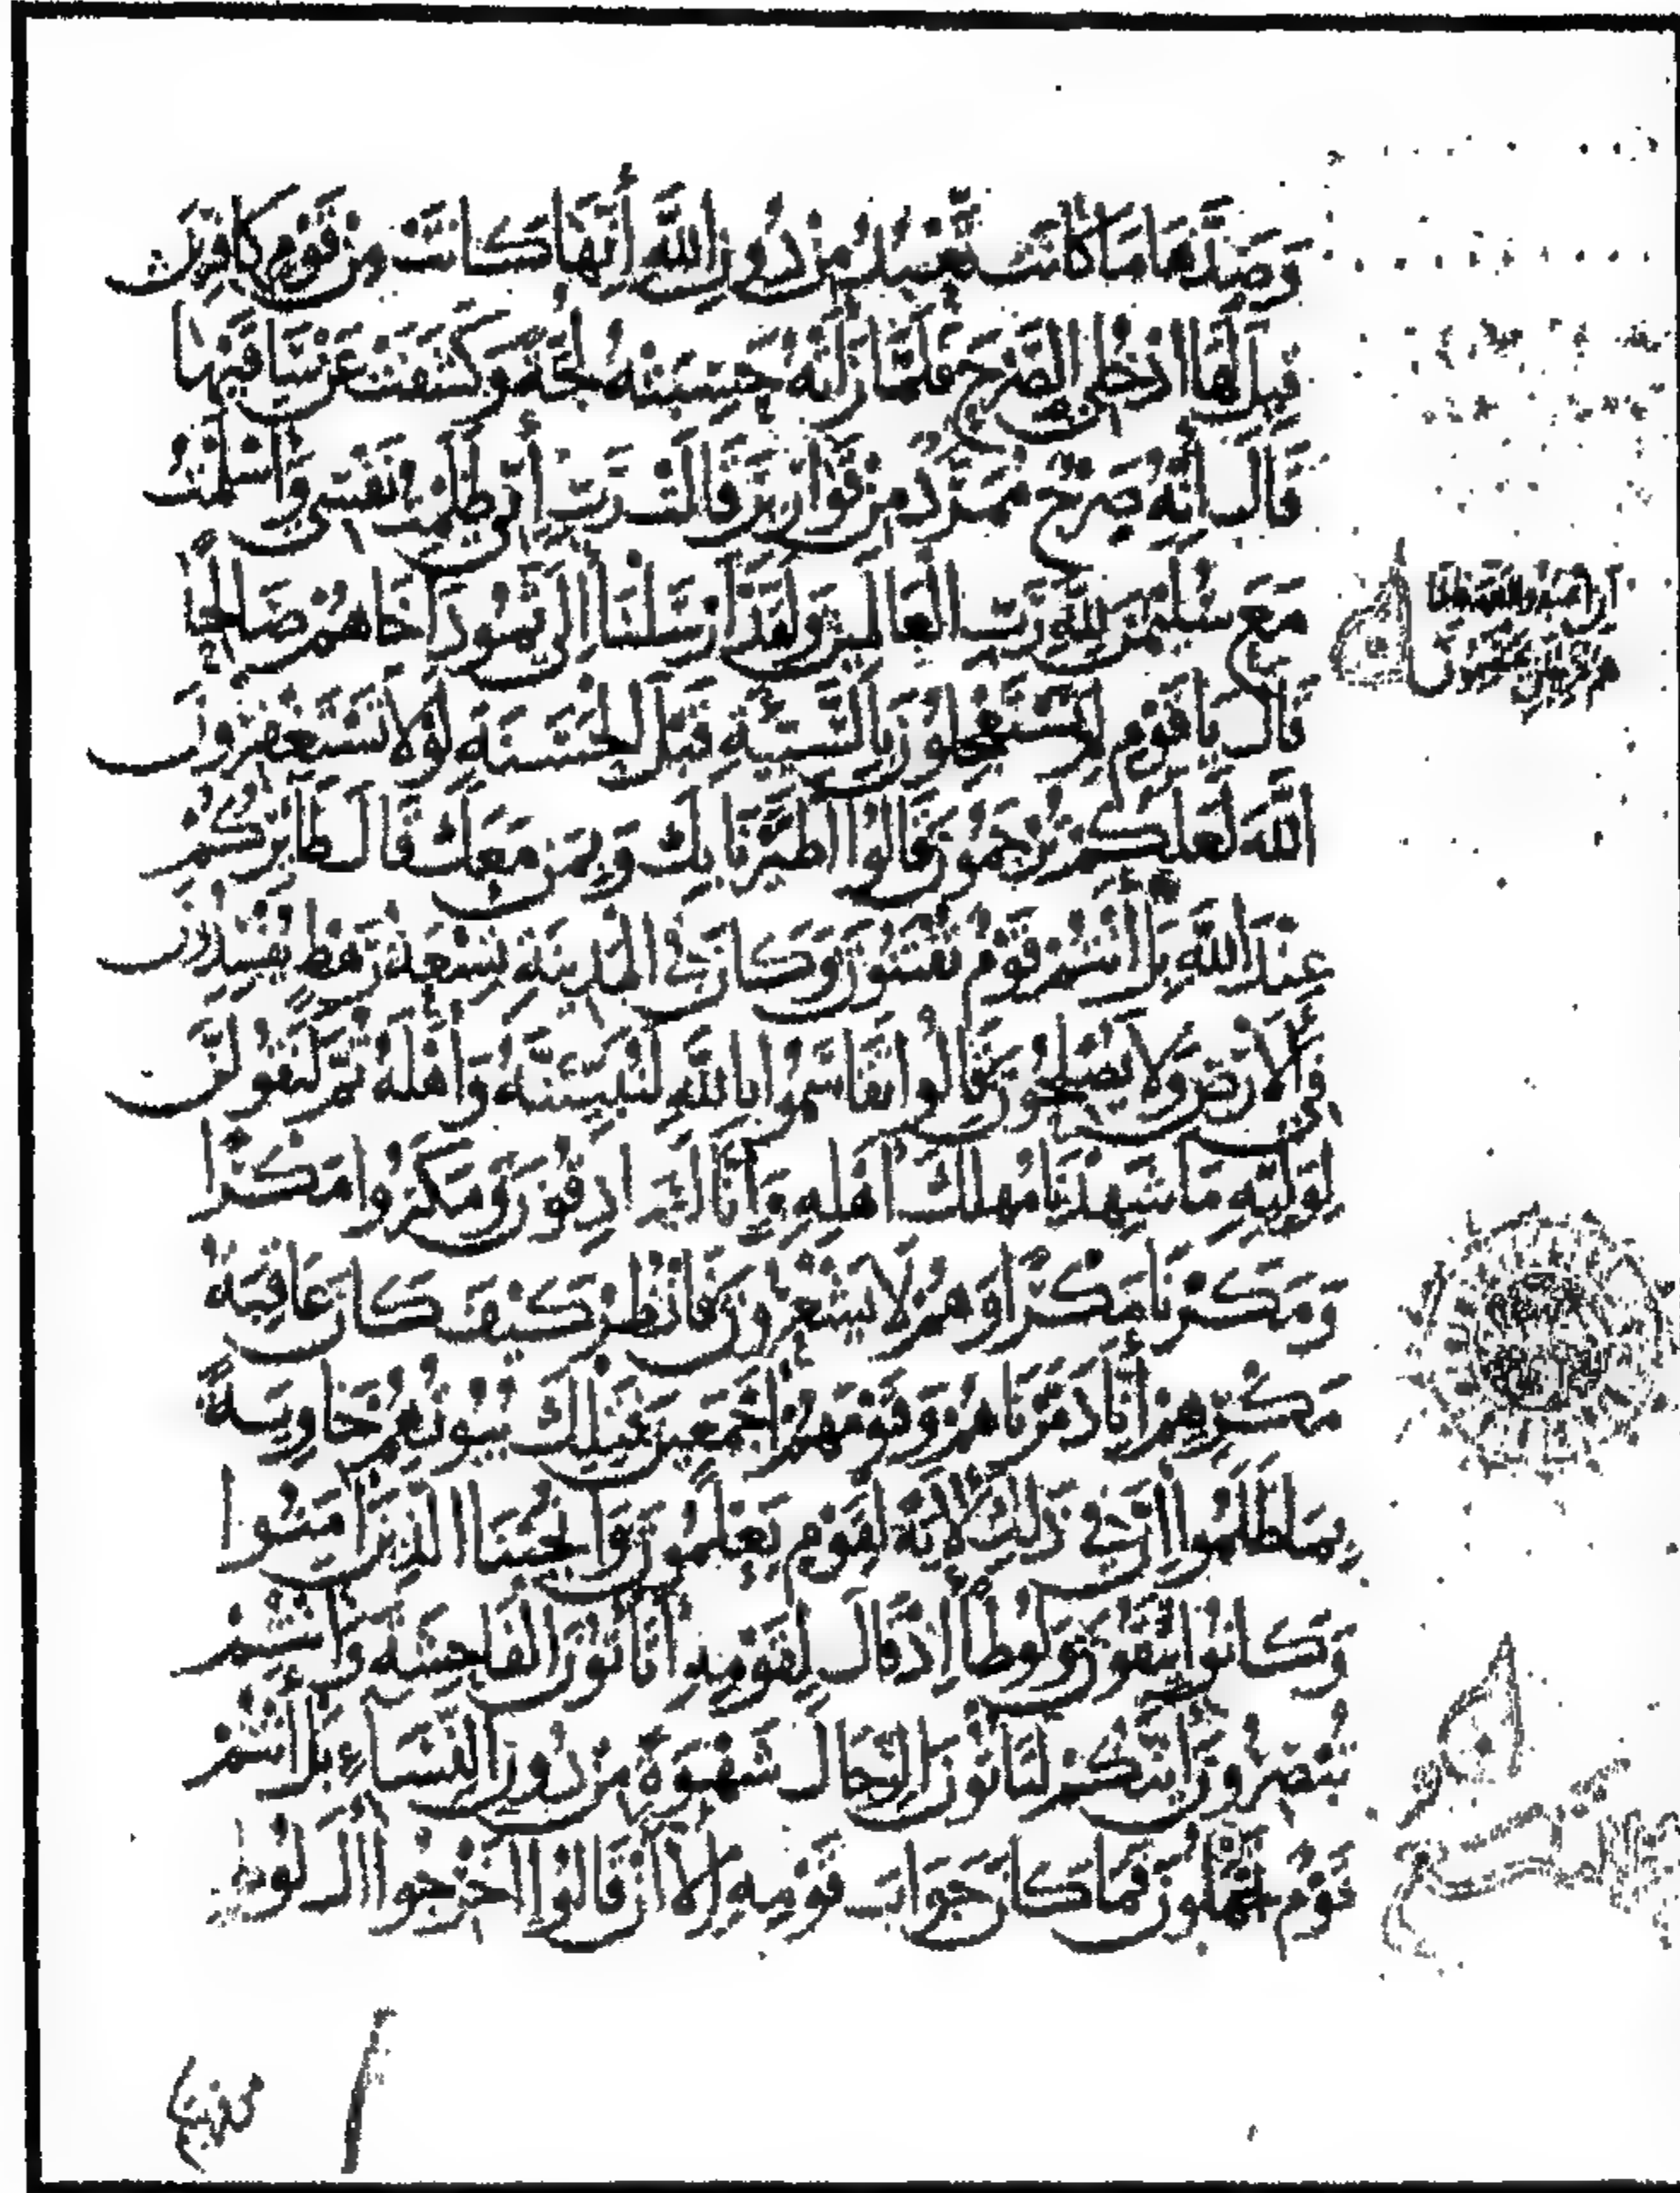 وَصَدَّهَا مَا كَانَتْ تَعْبُدُ مِنْ دُونِ اللَّهِ أَنَّهَا كَانَتْ مِنْ قَوْمٍ كَافِرِينَ
قِيلَ لَهَا ادْخُلِي الصَّرْحَ فَلَمَّا رَأَتْهُ حَسِبَتْهُ لُجَّةً وَكَشَفَتْ عَنْ سَاقَيْهَا
قَالَ إِنَّهُ صَرْحٌ مُمَرَّدٌ مِنْ قَوَارِيرَ قَالَتْ رَبِّ إِنِّي ظَلَمْتُ نَفْسِي وَأَسْلَمْتُ
مَعَ سُلَيْمَنَ لِلَّهِ رَبِّ الْعَالَمِينَ وَلَقَدْ أَرْسَلْنَا إِلَى ثَمُودَ أَخَاهُمْ صَالِحًا
قَالَ يَا قَوْمِ لِمَ تَسْتَعْجِلُونَ بِالسَّيِّئَةِ قَبْلَ الْحَسَنَةِ لَوْلَا تَسْتَغْفِرُونَ
اللَّهَ لَعَلَّكُمْ تُرْحَمُونَ قَالُوا اطَّيَّرْنَا بِكَ وَبِمَنْ مَعَكَ قَالَ طَائِرُكُمْ
عِنْدَ اللَّهِ بَلْ أَنْتُمْ قَوْمٌ تُفْتَنُونَ وَكَانَ فِي الْمَدِينَةِ تِسْعَةُ رَهْطٍ يُفْسِدُونَ
فِي الْأَرْضِ وَلَا يُصْلِحُونَ قَالُوا تَقَاسَمُوا بِاللَّهِ لَنُبَيِّتَنَّهُ وَأَهْلَهُ ثُمَّ لَنَقُولَنَّ
لِوَلِيِّهِ مَا شَهِدْنَا مَهْلِكَ أَهْلِهِ وَإِنَّا لَصَادِقُونَ وَمَكَرُوا مَكْرًا
وَمَكَرْنَا مَكْرًا وَهُمْ لَا يَشْعُرُونَ فَانْظُرْ كَيْفَ كَانَ عَاقِبَةُ
مَكْرِهِمْ أَنَّا دَمَّرْنَاهُمْ وَقَوْمَهُمْ أَجْمَعِينَ فَتِلْكَ بُيُوتُهُمْ خَاوِيَةً
بِمَا ظَلَمُوا إِنَّ فِي ذَلِكَ لَآيَةً لِقَوْمٍ يَعْلَمُونَ وَأَنْجَيْنَا الَّذِينَ آمَنُوا
وَكَانُوا يَتَّقُونَ وَلُوطًا إِذْ قَالَ لِقَوْمِهِ أَتَأْتُونَ الْفَاحِشَةَ وَأَنْتُمْ
تُبْصِرُونَ أَئِنَّكُمْ لَتَأْتُونَ الرِّجَالَ شَهْوَةً مِنْ دُونِ النِّسَاءِ بَلْ أَنْتُمْ
قَوْمٌ تَجْهَلُونَ فَمَا كَانَ جَوَابَ قَوْمِهِ إِلَّا أَنْ قَالُوا أَخْرِجُوا آلَ لُوطٍ